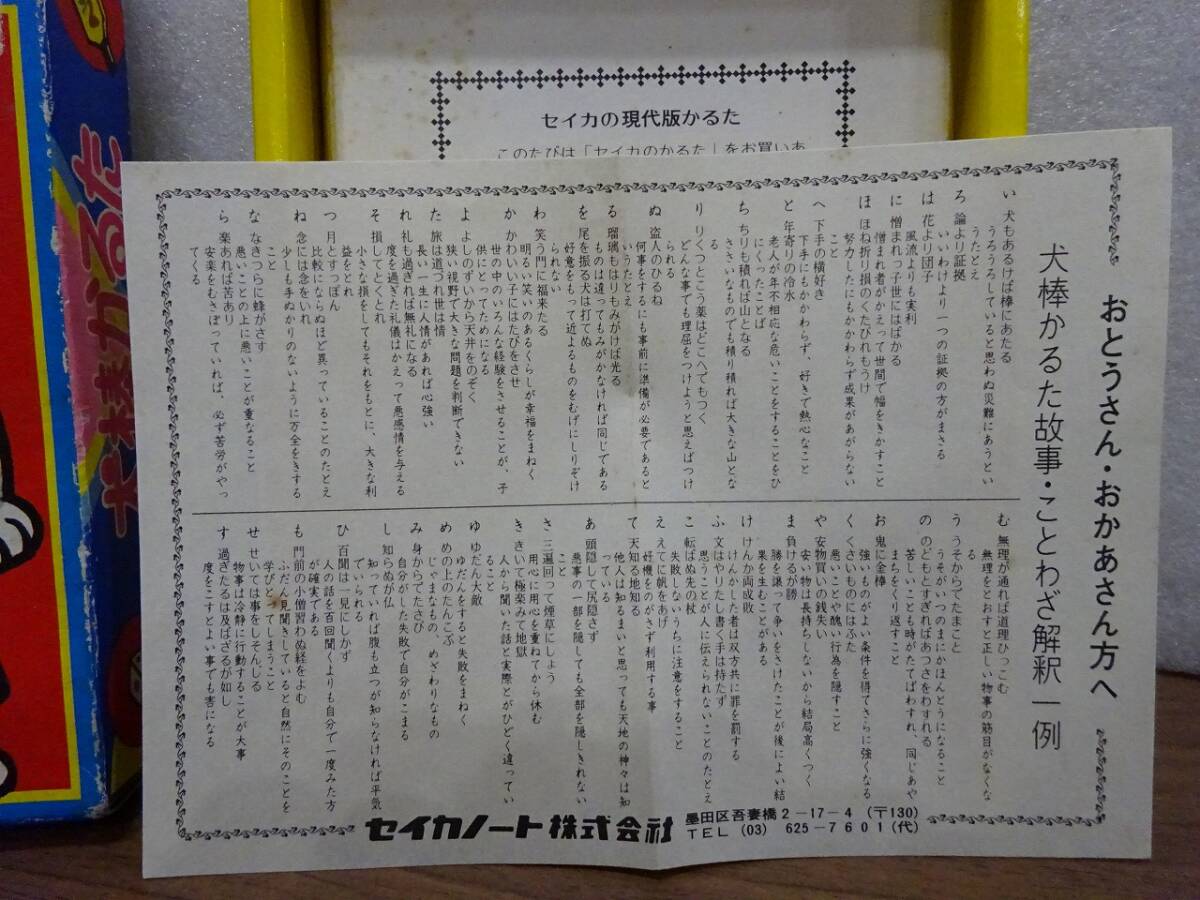 犬棒かるた
セイカの現代版かるた
このたびは「セイカのかるた」をお買いあ
おとうさん・おかあさん方へ
犬棒かるた故事・ことわざ解釈一例
い 犬もあるけば棒にあたる
うろうろしていると思わぬ災難にあうとい
うたとえ
ろ 論より証拠
いいわけより一つの証拠の方がまさる
は 花より団子
風流よりも実利
に 憎まれっ子世にはばかる
憎まれ者がかえって世間で幅をきかすこと
ほ ほね折り損のくたびれもうけ
努力したにもかかわらず成果があがらない
こと
へ 下手の横好き
下手にもかかわらず、好きで熱心なこと
と 年寄りの冷水
老人が年不相応な危いことをすることをひ
にくったことば
ち ちりも積れば山となる
ささいなものでも積り積れば大きな山とな
る
り りくつとこう薬はどこへでもつく
どんな事でも理屈をつけようと思えばつけ
られる
ぬ 盗人のひるね
何事をするにも事前に準備が必要であると
いうたとえ
る 瑠璃もはりもみがけば光る
ものは違ってもみがかなければ同じである
を 尾を振る犬は打てぬ
好意をもって近よるものをむげにしりぞけ
られない
わ 笑う門に福来たる
明るい笑いのあるくらしが幸福をまねく
か かわいい子にはたびをさせ
世の中のいろんな経験をさせることが、子
供にとってためになる
よ よしのずいから天井をのぞく
狭い視野で大きな問題を判断できない
た 旅は道づれ世は情
長い一生に人情があれば心強い
れ 礼も過ぎれば無礼になる
度を過ぎた礼儀はかえって悪感情を与える
そ 損してとくとれ
小さな損をしてもそれをもとに、大きな利
益をとれ
つ 月とすっぽん
比較にならぬほど異っていることのたとえ
ね 念には念をいれ
少しも手ぬかりのないように万全をきする
こと
な なきつらに蜂がさす
悪いことの上に悪いことが重なること
ら 楽あれば苦あり
安楽をむさぼっていれば、必ず苦労がやっ
てくる
む 無理が通れば道理ひっこむ
無理をとおすと正しい物事の筋目がなくな
る
う うそからでたまこと
うそがいつのまにかほんとうになること
の のどもとすぎればあつさをわすれる
苦しいことも時がたてばわすれ、同じあや
まちをくり返すこと
お 鬼に金棒
強いものがよい条件を得てさらに強くなる
く くさいものにはふた
悪いことや醜い行為を隠すこと
や 安物買いの銭失い
安い物は長持ちしないから結局高くつく
ま 負けるが勝
勝を譲って争いをさけたことが後によい結
果を生むことがある
け けんか両成敗
けんかした者は双方共に罪を罰する
ふ 文はやりたし書く手は持たず
思うことが人に伝えられないことのたとえ
こ 転ばぬ先の杖
失敗しないうちに注意をすること
え えてに帆をあげ
好機をのがさず利用する事
て 天知る地知る
他人は知るまいと思っても天地の神々は知
っている
あ 頭隠して尻隠さず
悪事の一部を隠しても全部を隠しきれない
こと
さ 三遍回って煙草にしょう
用心に用心を重ねてから休む
き きいて極楽みて地獄
人から聞いた話と実際とがひどく違ってい
ること
ゆ ゆだん大敵
ゆだんをすると失敗をまねく
め めの上のたんこぶ
じゃまなもの、めざわりなもの
み 身からでたさび
自分がした失敗で自分がこまる
し 知らぬが仏
知っていれば腹も立つが知らなければ平気
でいられる
ひ 百聞は一見にしかず
人の話を百回聞くよりも自分で一度みた方
が確実である
も 門前の小僧習わぬ経をよむ
ふだん見聞きしていると自然にそのことを
学びとってしまうこと
せ せいては事をしそんじる
物事は冷静に行動することが大事
す 過ぎたるは及ばざるが如し
度をこすとよい事でも害になる
セイカノート株式会社
墨田区吾妻橋2-17-4 (〒130)
TEL (03) 625-7601(代)